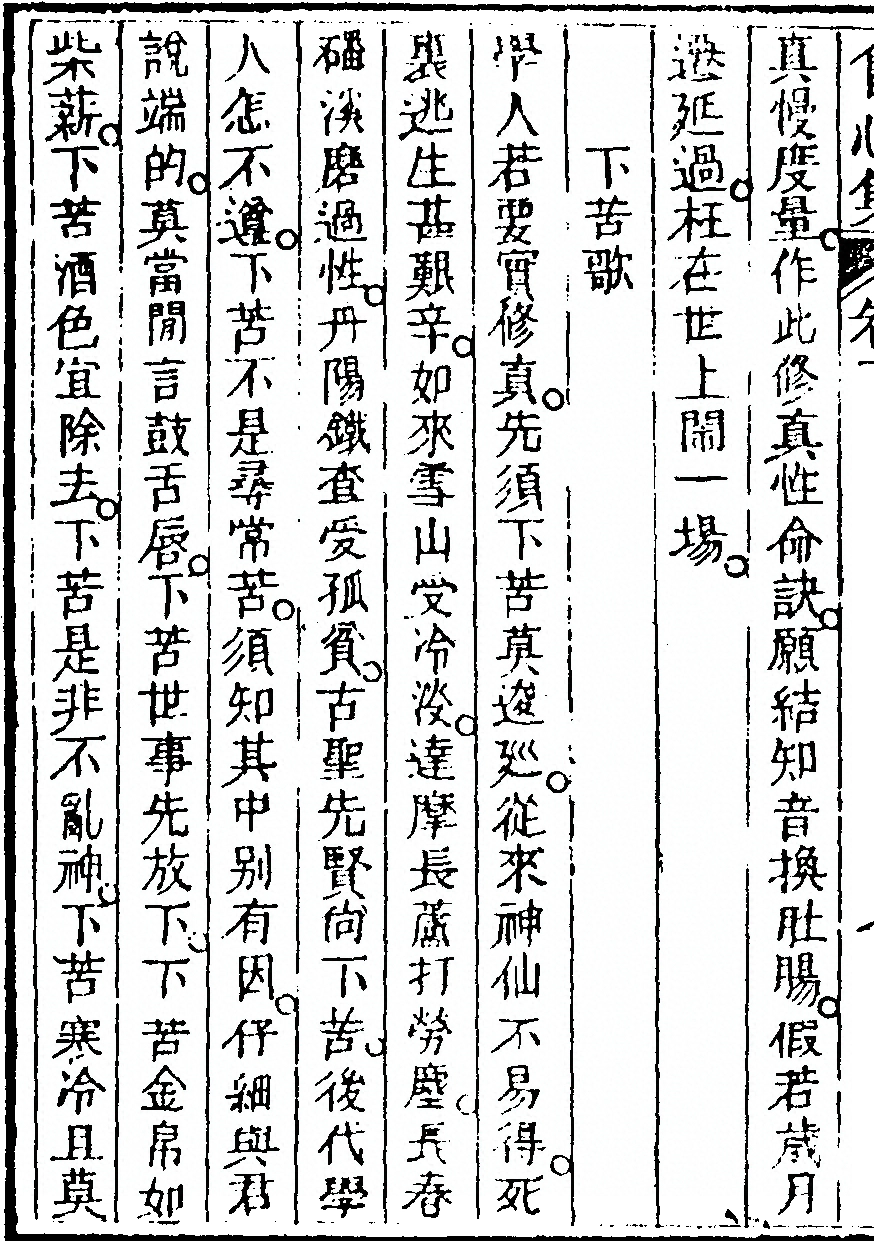 自心集 卷一
真慢度量作此修真性命訣願結知音換肚腸假若歲月
遷延過枉在世上鬧一場
下苦歌
學人若要實修真先須下苦莫逡廵從來神仙不易得死
裏逃生甚艱辛如來雪山受冷淡達摩長蘆打勞塵長春
磻溪磨過性丹陽鐵查受孤貧古聖先賢尚下苦後代學
人怎不遵下苦不是尋常苦須知其中别有因仔細與君
說端的莫當閒言鼓舌唇下苦世事先放下下苦金帛如
柴薪下苦酒色宜除去下苦是非不亂神下苦寒冷且莫